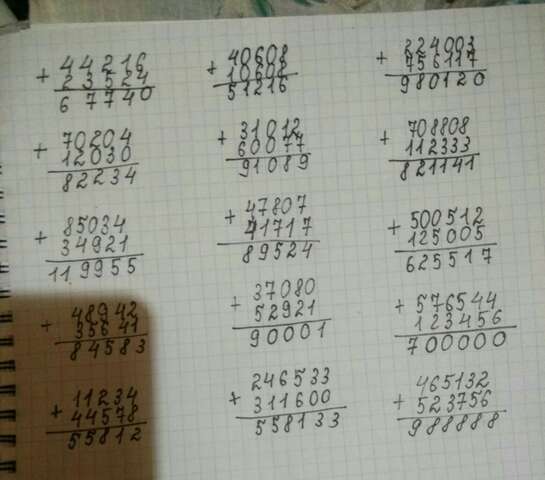 44216
+ 23524
67740
70204
+ 12030
82234
85034
+ 34921
119955
48942
+ 35641
84583
11234
+ 44578
55812
40608
+ 10608
51216
31012
+ 60077
91089
47807
+ 41717
89524
37080
+ 52921
90001
246533
+ 311600
558133
224003
+ 756117
980120
708808
+ 112333
821141
500512
+ 125005
625517
576544
+ 123456
700000
465132
+ 523756
988888